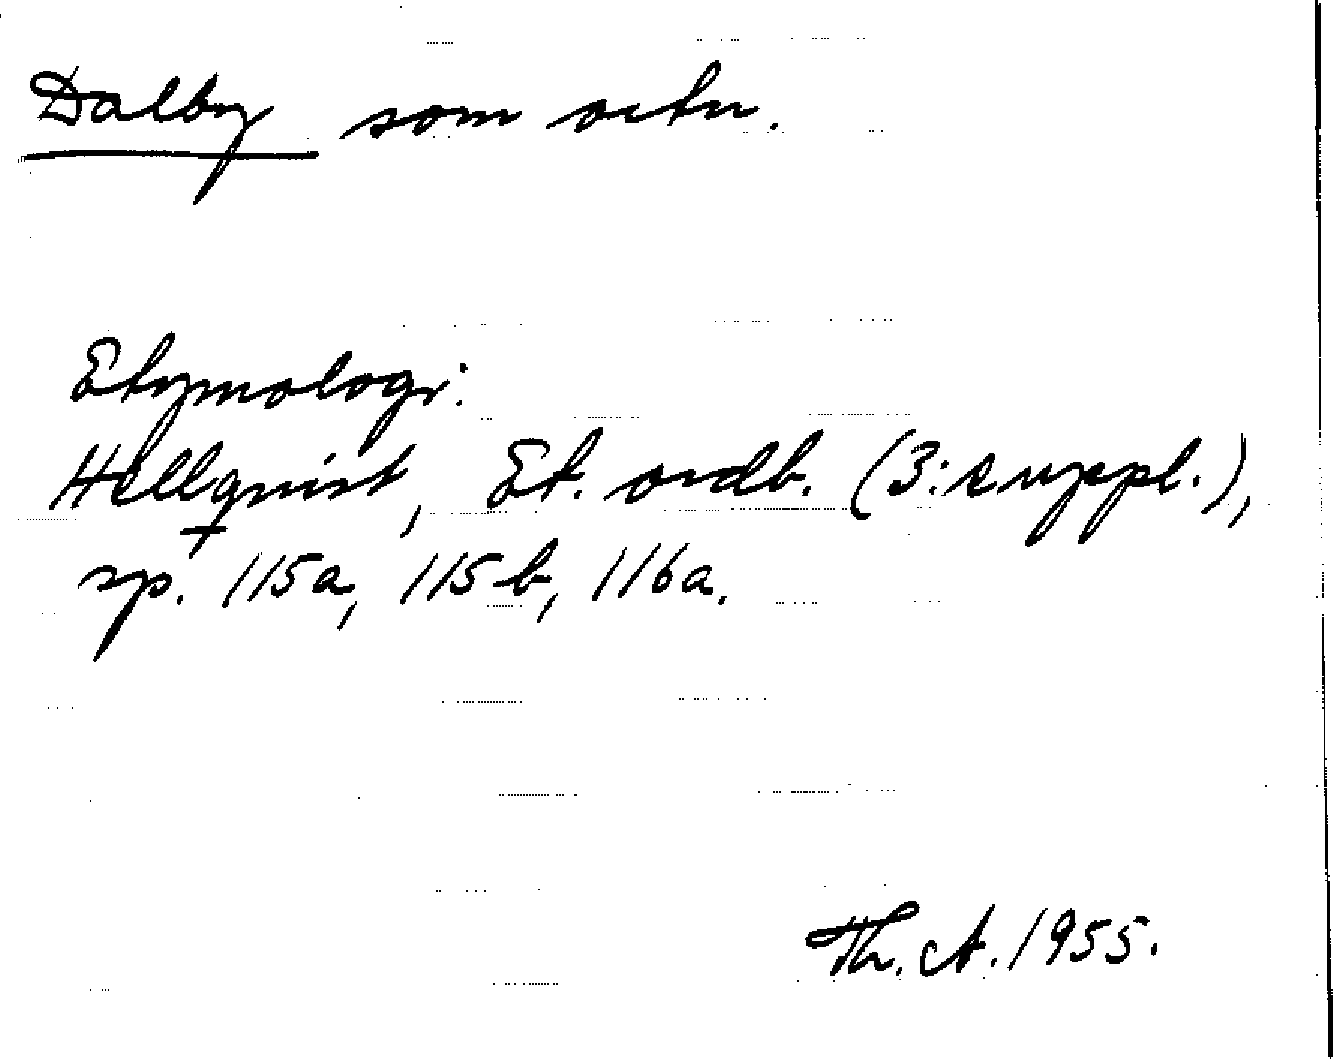 Dalby som ortn.
Etymologi:
Hellquist, Et. ordb. (3: suppl.),
sp. 115a, 115b, 116a.
Th. A. 1955.